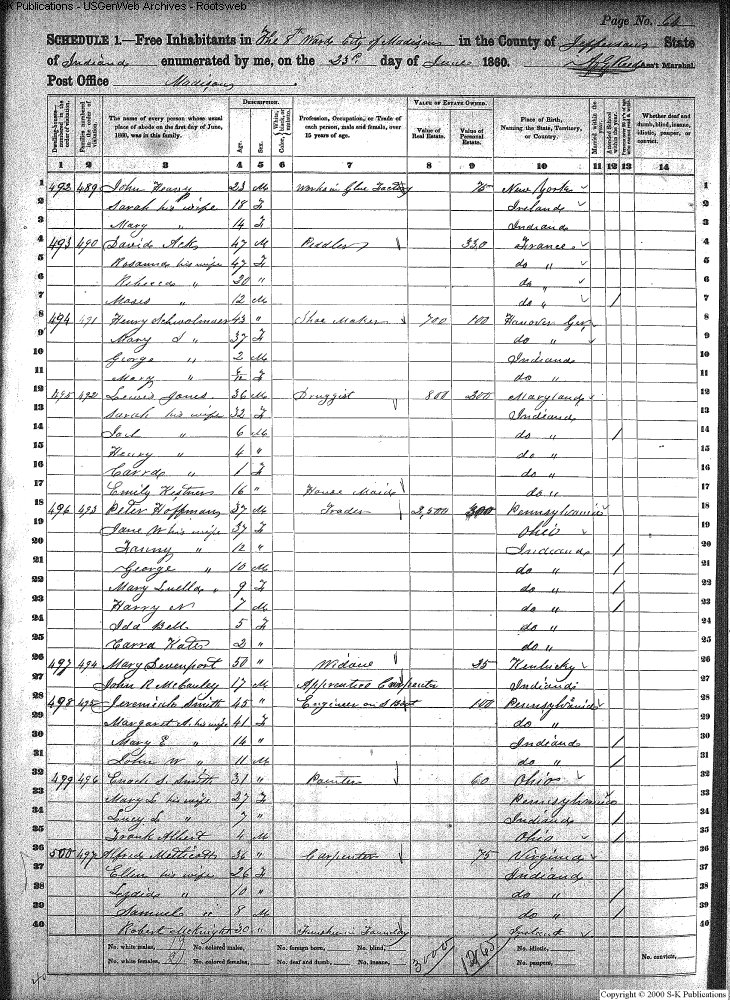 S-K Publications - USGenWeb Archives - Rootsweb
Page No. 61
SCHEDULE 1.—Free Inhabitants in The 8th Ward City of Madison in the County of Jefferson State
of Indiana enumerated by me, on the 23d day of June 1860. Ass't Marshal.
Post Office Madison
Dwelling-houses—numbered in the order of visitation.
Families numbered in the order of visitation.
The name of every person whose usual place of abode on the first day of June, 1860, was in this family.
DESCRIPTION.
Age.
Sex.
Color, White, black, or mulatto.
Profession, Occupation, or Trade of each person, male and female, over 15 years of age.
VALUE OF ESTATE OWNED.
Value of Real Estate.
Value of Personal Estate.
Place of Birth, Naming the State, Territory, or Country.
Married within the year.
Attended School within the year.
Whether deaf and dumb, blind, insane, idiotic, pauper, or convict.
1 2 3 4 5 6 7 8 9 10 11 12 13 14
1 492 489 John 23 M Works in Glue Factory 75 New York 1
2 Sarah his wife 18 F Ireland 2
3 Mary " 14 F Indiana 3
4 493 490 David Ack 47 M Peddler 330 France 4
5 Rosanna his wife 47 F do " 5
6 Rebecca " 20 " do " 6
7 Moses " 12 M do " / 7
8 494 491 Henry 43 " Shoe Maker 700 100 Hanover Ger. 8
9 Mary " 37 F do " 9
10 George " 2 M Indiana 10
11 Mary " F do " 11
12 495 492 Lewis Jones 36 M Druggist 800 200 Maryland 12
13 Sarah his wife 32 F Indiana 13
14 Joel " 6 M do " / 14
15 Henry " 4 " do " 15
16 Carra " 1 F do " 16
17 Emily 16 " House Maid do " 17
18 496 493 Peter Hoffman 37 M Trader 2,500 300 Pennsylvania 18
19 Jane W his wife 37 F Ohio 19
20 Fanny " 12 " Indiana / 20
21 George " 10 M do " / 21
22 Mary Luella " 9 F do " / 22
23 Harry N 7 M do " / 23
24 Ida Bell 5 F do " 24
25 Carra Kate 2 " do " 25
26 497 494 Mary Devenport 50 " Widow 35 Kentucky 26
27 John R McCauley 17 M Carpenter Indiana 27
28 498 495 Jeremiah Smith 45 " Engineer on S Boat 100 Pennsylvania 28
29 Margaret A. his wife 41 F do " 29
30 Mary E " 14 " Indiana / 30
31 John W " 11 M do " / 31
32 499 496 Enoch S. Smith 31 " Painter 60 Ohio 32
33 Mary L his wife 27 F Pennsylvania 33
34 Lucy L " 7 " Indiana / 34
35 Frank Albert 4 M Ohio / 35
36 500 497 Alfred 36 " Carpenter 75 Virginia 36
37 Ellen his wife 26 F Indiana 37
38 Lydia " 10 " do " / 38
39 Samuel " 8 M do " / 39
40 Robert McKnight 30 " Foundry Ireland 40
No. white males, 19 No. colored males, No. foreign born, No. blind, 3000 1265 No. idiotic, No. convicts,
No. white females, 21 No. colored females, No. deaf and dumb, No. insane, No. paupers,
Copyright © 2000 S-K Publications